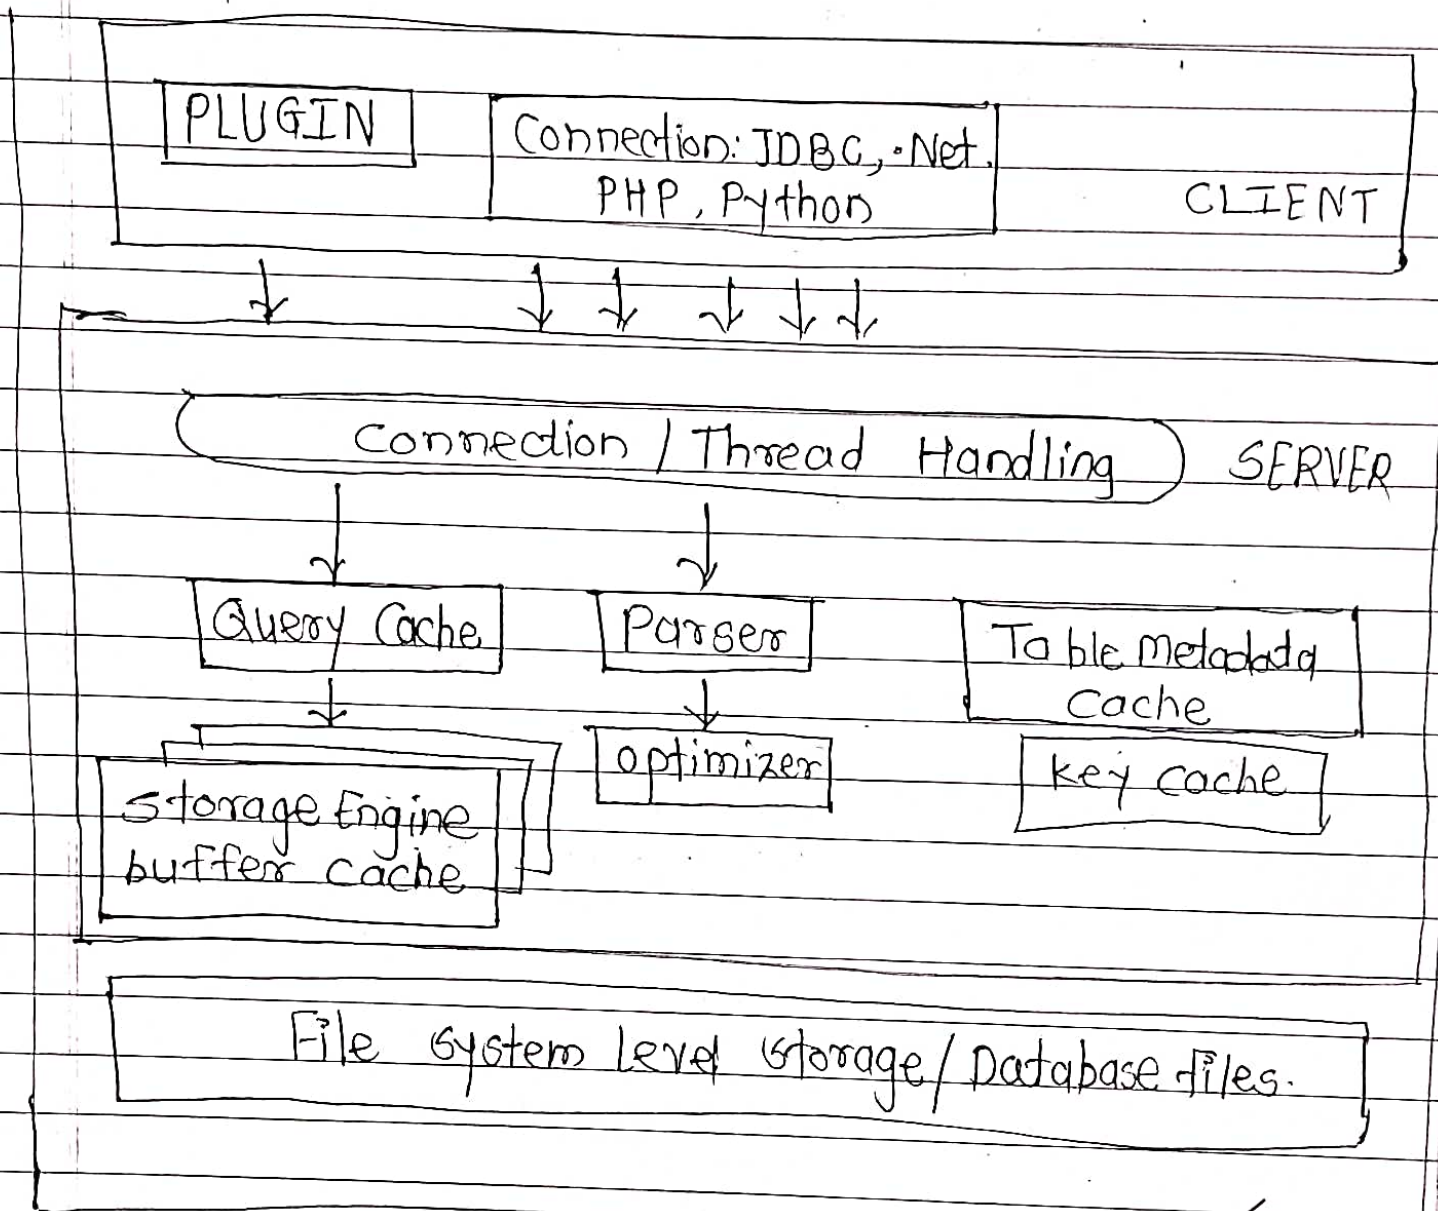 PLUGIN
Connection: JDBC, .Net.
PHP, Python
CLIENT
Connection / Thread Handling
SERVER
Query Cache
Parser
Table Metadata
Cache
optimizer
key cache
Storage Engine
buffer cache
File System Level Storage/Database files.